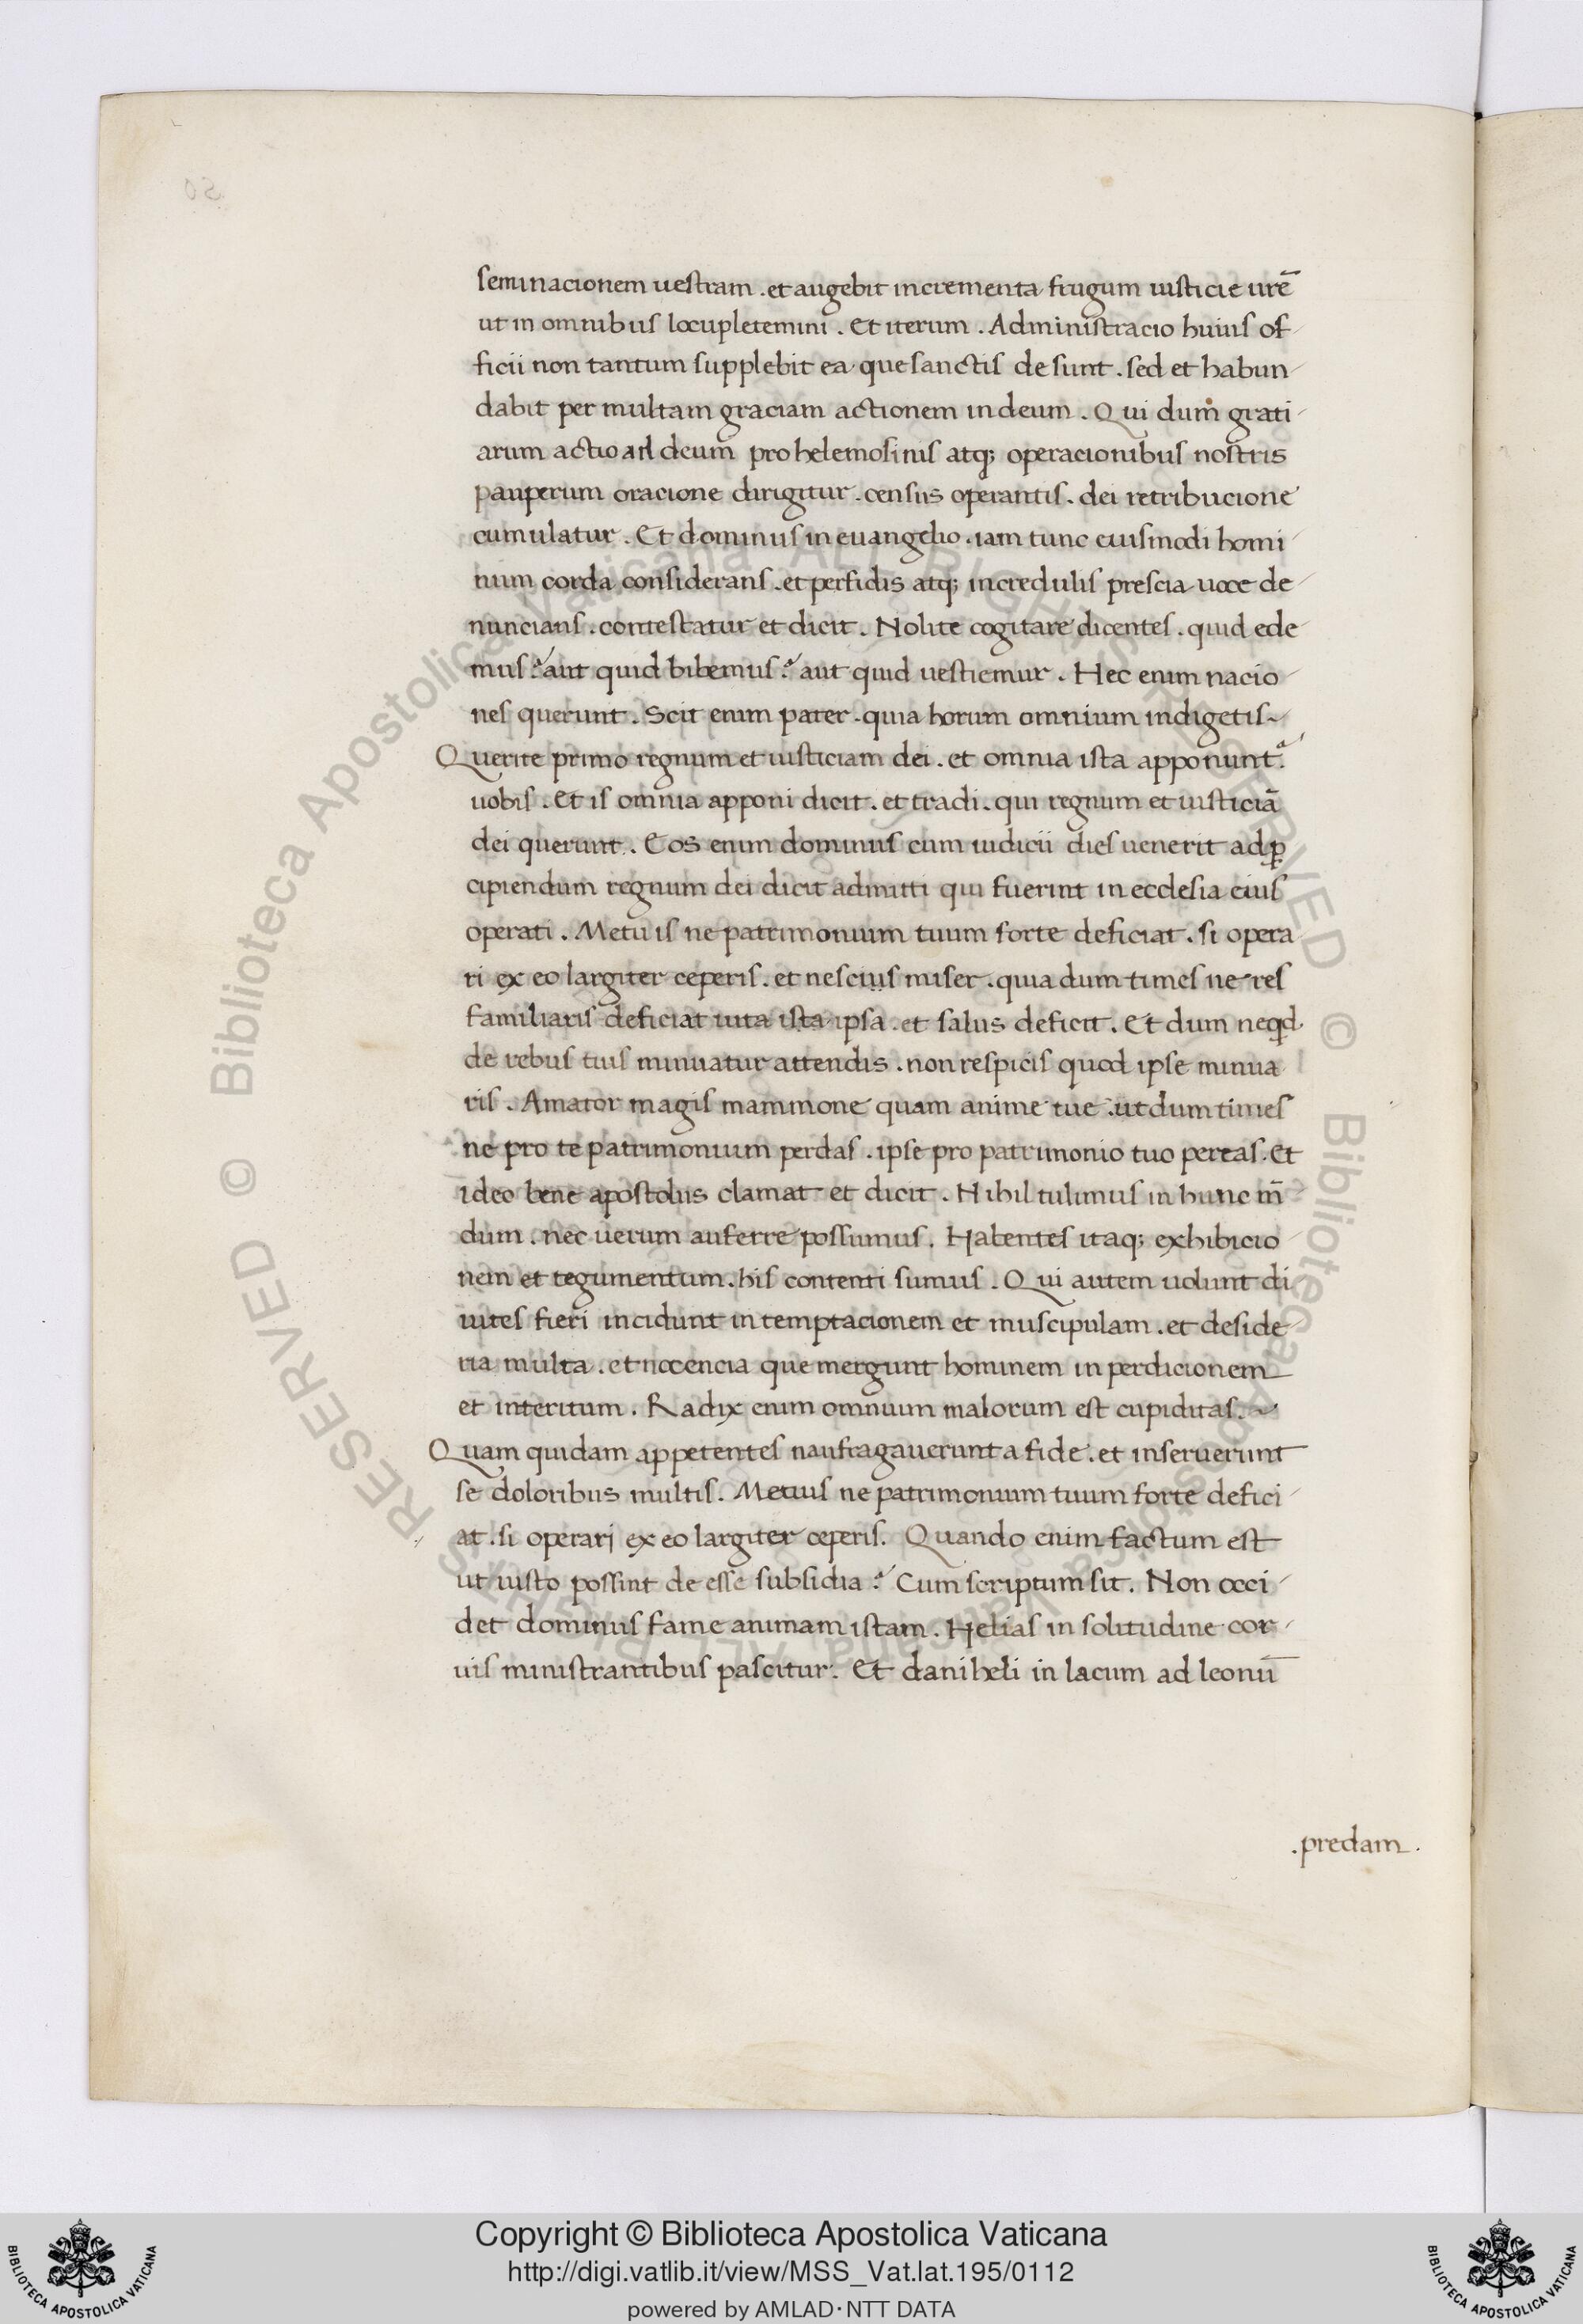 seminacionem uestram . et augebit incrementa frugum iusticie ur̄e
ut in omnibus locupletemini . Et iterum . Administracio huius of-
ficii non tantum supplebit ea que sanctis desunt . sed et habun-
dabit per multam graciam actionem in deum . Qui dum grati-
arum actio ad deum pro helemosinis atq; operacionibus nostris
pauperum oracione dirigitur . census operantis . dei retribucione
cumulatur . Et dominus in euangelio . iam tunc eiusmodi homi-
num corda considerans . et perfidis atq; incredulis prescia uoce de-
nuncians . contestatur et dicit . Nolite cogitare dicentes . quid ede-
mus ? aut quid bibemus ? aut quid uestiemur . Hec enim nacio-
nes querunt . Scit enim pater . quia horum omnium indigetis ~
Querite primo regnum et iusticiam dei . et omnia ista apponunt᷑
uobis . Et is omnia apponi dicit . et tradi . qui regnum et iusticiā
dei querunt . Eos enim dominus cum iudicii dies uenerit ad ꝑ
cipiendum regnum dei dicit admitti qui fuerint in ecclesia eius
operati . Metuis ne patrimonium tuum forte deficiat . si opera-
ri ex eo largiter ceperis . et nescius miser . quia dum times ne res
familiaris deficiat uita ista ipsa . et salus deficit . Et dum neqd
de rebus tuis minuatur attendis . non respicis quod ipse minua
ris . Amator magis mammone quam anime tue . ut dum times
ne pro te patrimonium perdas . ipse pro patrimonio tuo pereas . Et
ideo bene apostolus clamat et dicit . Nihil tulimus in hunc m̄
dum . nec uerum auferre possumus . Habentes itaq; exhibicio-
nem et tegumentum . his contenti sumus . Qui autem uolunt di
uites fieri incidunt in temptacionem et muscipulam . et deside-
ria multa . et nocencia que mergunt hominem in perdicionem
et interitum . Radix enim omnium malorum est cupiditas . ~
Quam quidam appetentes naufragauerunt a fide . et inseruerunt
se doloribus multis . Metuis ne patrimonium tuum forte defici-
at . si operari ex eo largiter ceperis . Quando enim factum est
ut iusto possint de esse subsidia ? Cum scriptum sit . Non occi-
det dominus fame animam istam . Helias in solitudine cor-
uis ministrantibus pascitur . Et daniheli in lacum ad leonū
. predam .
50
© Biblioteca Apostolica Vaticana, ALL RIGHTS RESERVED © Biblioteca Apostolica Vaticana, ALL RIGHTS RESERVED
BIBLIOTECA APOSTOLICA VATICANA
Copyright © Biblioteca Apostolica Vaticana
http://digi.vatlib.it/view/MSS_Vat.lat.195/0112
powered by AMLAD·NTT DATA
BIBLIOTECA APOSTOLICA VATICANA